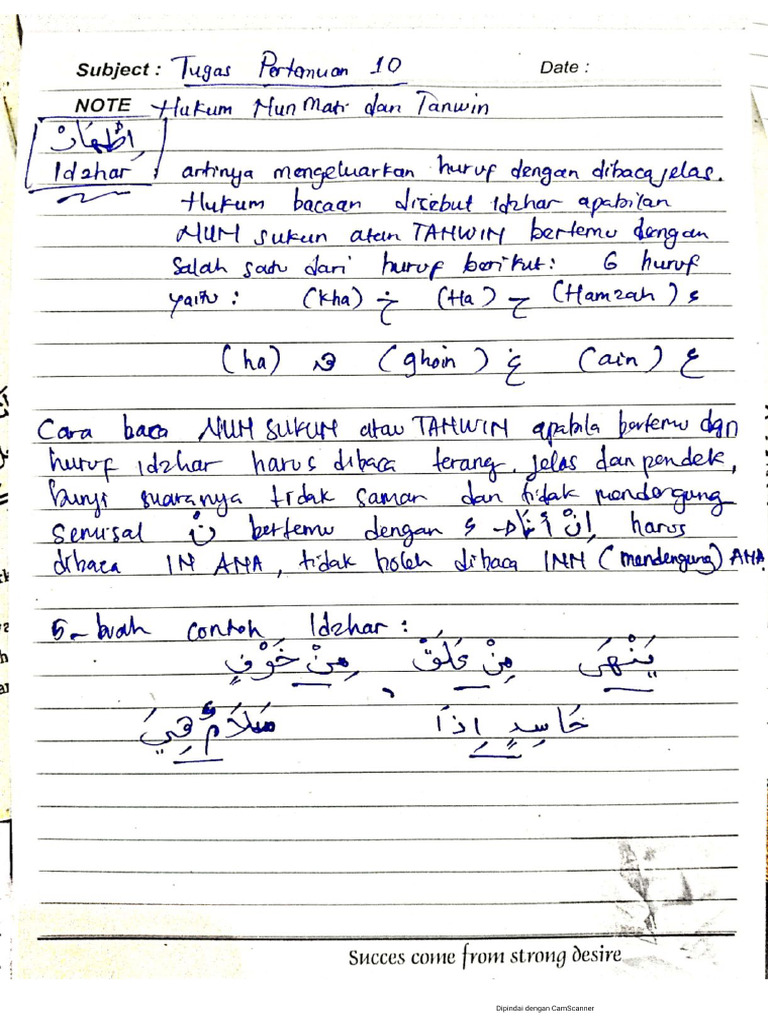 Subject : Tugas Pertemuan 10 Date :
NOTE Hukum Nun Mati dan Tanwin
Idzhar : artinya mengeluarkan huruf dengan dibaca jelas.
Hukum bacaan disebut Idzhar apabilan
NUN sukun atau TANWIN bertemu dengan
Salah satu dari huruf berikut: 6 huruf
yaitu : (kha) خ (Ha) ح (Hamzah) ء
(ha) ه (ghoin) غ (ain) ع
Cara baca NUN SUKUN atau TANWIN apabila bertemu dgn
huruf idzhar harus dibaca terang, jelas dan pendek,
bunyi suaranya tidak samar dan tidak mendengung
Semisal نْ bertemu dengan ء harus
dibaca IN ANA, tidak boleh dibaca INN (mendengung) ANA.
5-buah contoh Idzhar :
يَنْهَى مِنْ عَلَقٍ مِنْ خَوْفٍ
حَاسِدٍ اِذَا سَلَامٌ هِيَ
Succes come from strong desire
Dipindai dengan CamScanner